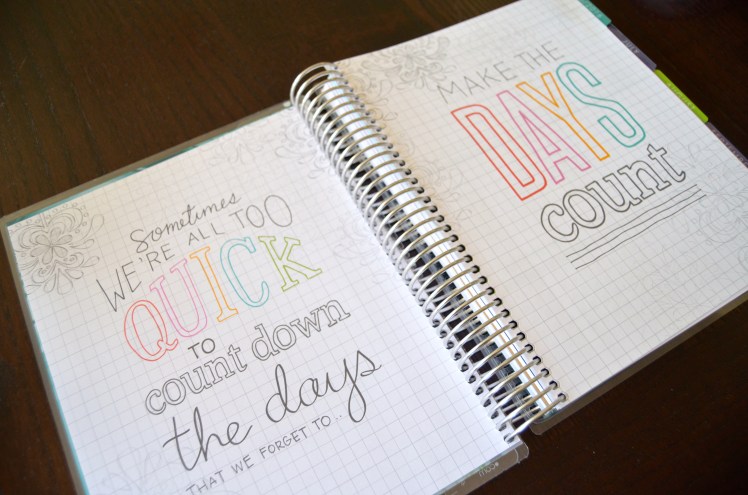 Sometimes
WE'RE ALL TOO
QUICK
TO
count down
the days
THAT WE FORGET TO...
MAKE THE
DAYS
count